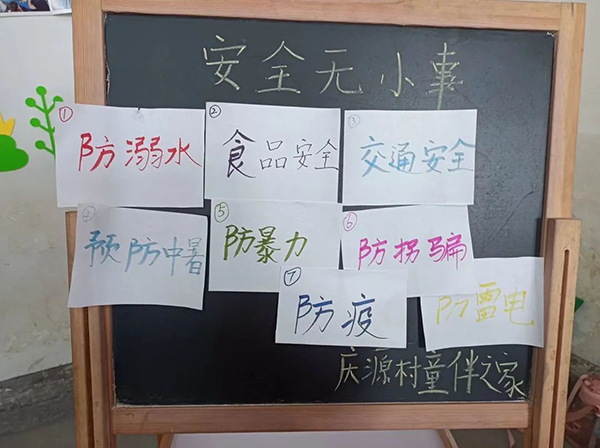 安全无小事
①防溺水
②食品安全
③交通安全
④预防中暑
⑤防暴力
⑥防拐骗
⑦防疫
防雷电
庆源村童伴之家